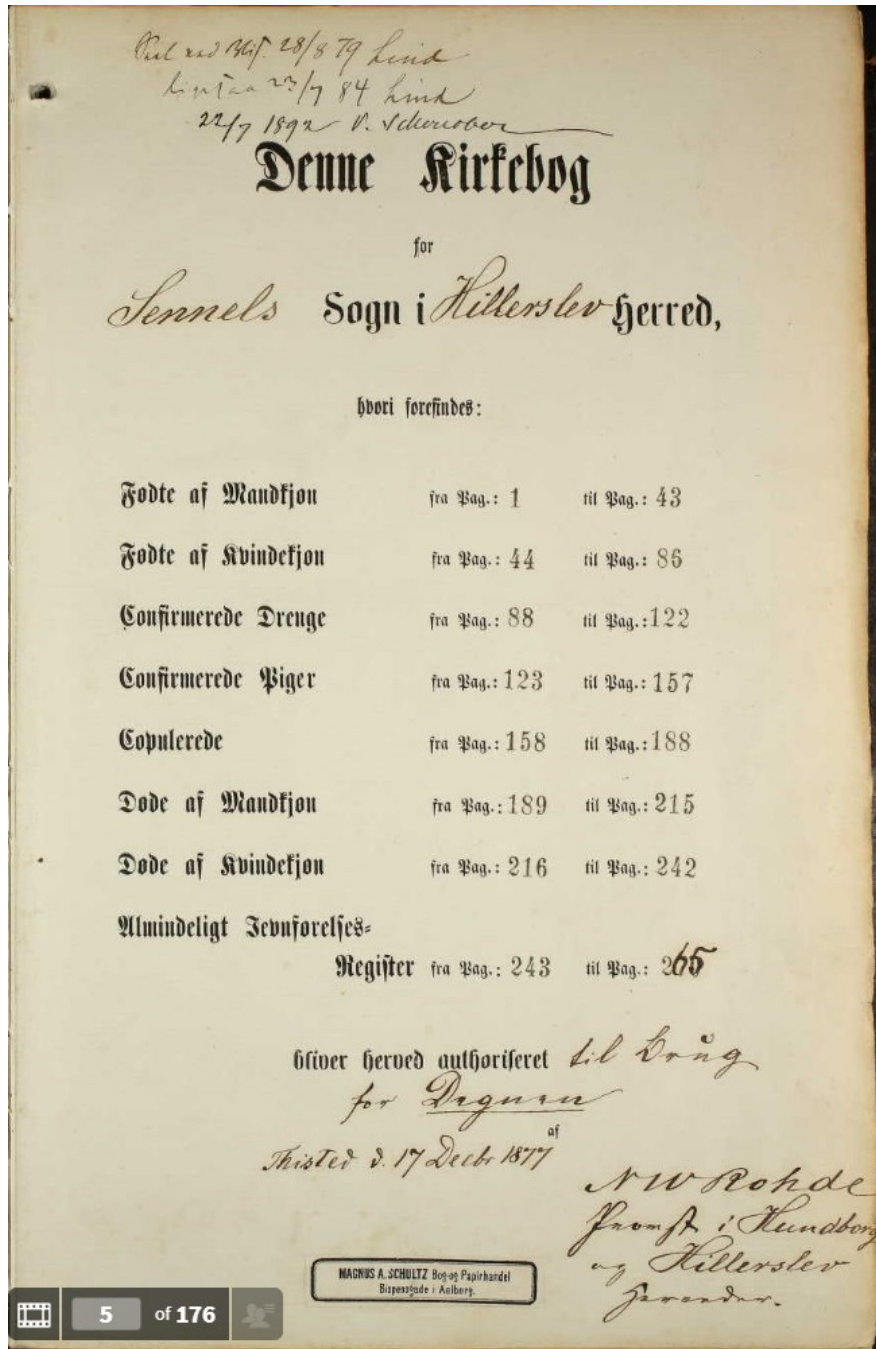 28/8 79 Lind
23/7 84 Lind
22/7 1892 V.
Denne Kirkebog
for
Sennels Sogn i Hillerslev Herred,
hvori forefindes:
Fødte af Mandkjøn fra Pag.: 1 til Pag.: 43
Fødte af Kvindekjøn fra Pag.: 44 til Pag.: 86
Confirmerede Drenge fra Pag.: 88 til Pag.: 122
Confirmerede Piger fra Pag.: 123 til Pag.: 157
Copulerede fra Pag.: 158 til Pag.: 188
Døde af Mandkjøn fra Pag.: 189 til Pag.: 215
Døde af Kvindekjøn fra Pag.: 216 til Pag.: 242
Almindeligt Jevnførelses-
Register fra Pag.: 243 til Pag.: 265
bliver herved authoriseret til Brug
for Degnen
af
Thisted d. 17 Decbr 1877
N W Rohde
Provst i Hundborg
og Hillerslev
Herreder.
MAGNUS A. SCHULTZ Bog-og Papirhandel
Bispensgade i Aalborg.
5 of 176